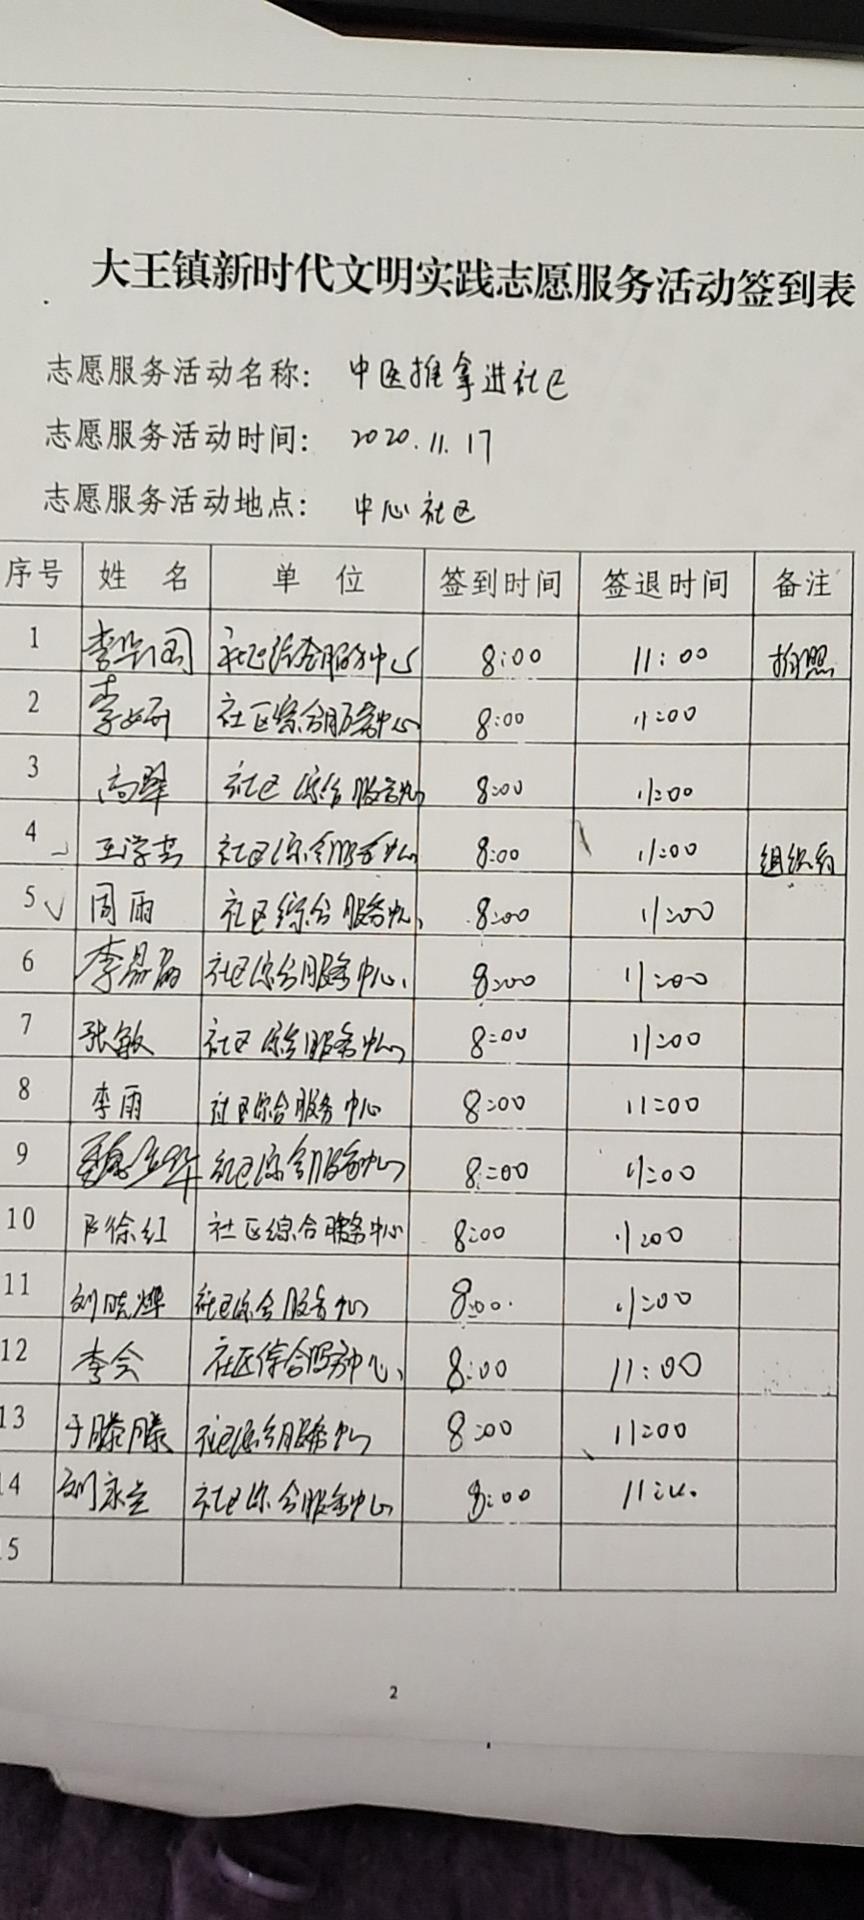 大王镇新时代文明实践志愿服务活动签到表
志愿服务活动名称： 中医推拿进社区
志愿服务活动时间： 2020.11.17
志愿服务活动地点： 中心社区
序号 姓名 单位 签到时间 签退时间 备注
1 李华国 社区综合服务中心 8:00 11:00 拍照
2 李妍 社区综合服务中心 8:00 11:00
3 高翠 社区综合服务中心 8:00 11:00
4 社区综合服务中心 8:00 11:00 组织者
5 √ 周雨 社区综合服务中心 8:00 11:00
6 社区综合服务中心 8:00 11:00
7 张敏 社区综合服务中心 8:00 11:00
8 李雨 社区综合服务中心 8:00 11:00
9 社区综合服务中心 8:00 11:00
10 徐红 社区综合服务中心 8:00 11:00
11 刘晓烨 社区综合服务中心 8:00 11:00
12 李会 社区综合服务中心 8:00 11:00
13 于滕滕 社区综合服务中心 8:00 11:00
14 刘永 社区综合服务中心 8:00
15
2